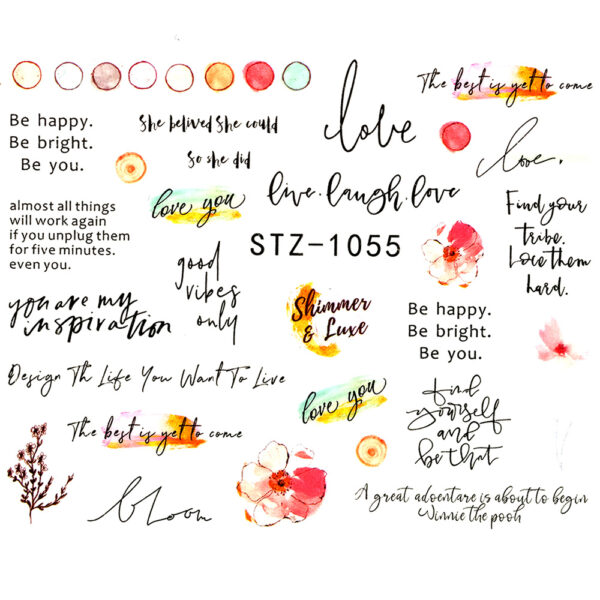 The best is yet to come
Be happy.
Be bright.
Be you.
She belived She could
So she did
love
love.
almost all things
will work again
if you unplug them
for five minutes.
even you.
love you
live. laugh. love
Find your
tribe.
Love them
hard.
STZ-1055
good
vibes
only
you are my
inspiration
Shimmer
& Luxe
Be happy.
Be bright.
Be you.
Design Th Life You Want To Live
love you
find
yourself
and
be that
The best is yet to come
bloom
A great adventare is about to begin
Winnie the pooh